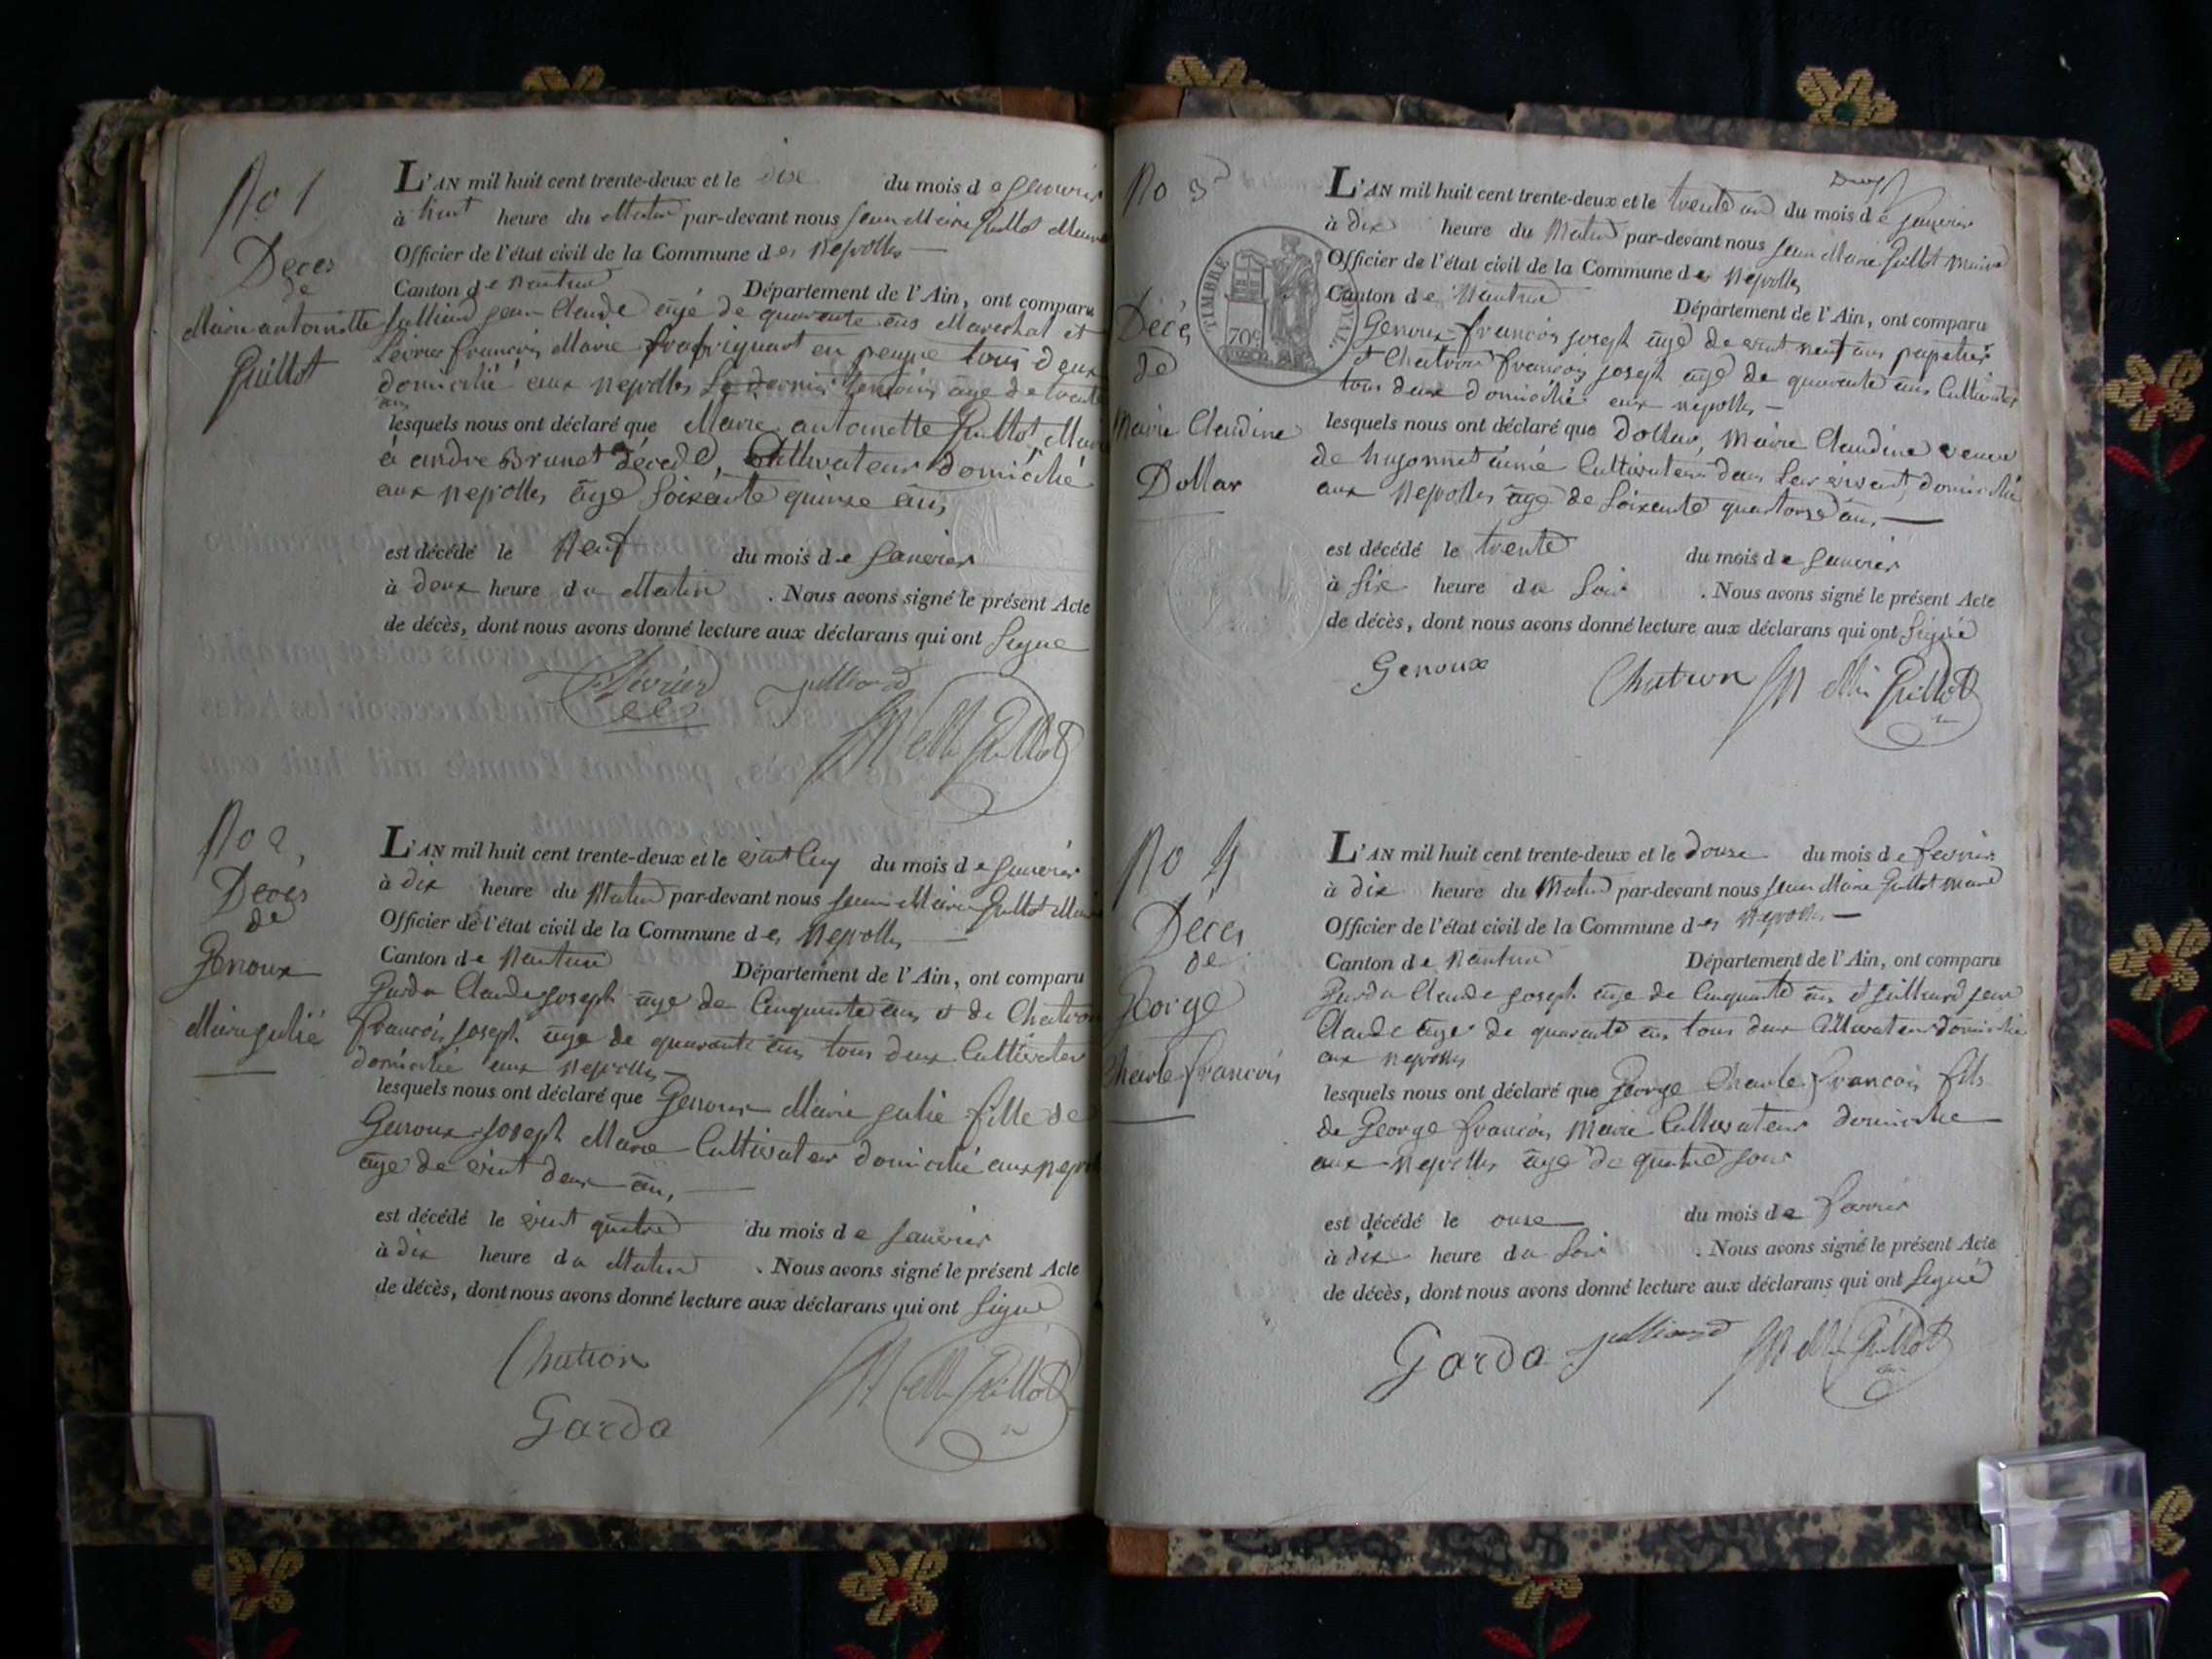 No 1
Décès
de
Marie antoinette
Guillot
L'AN mil huit cent trente-deux et le dixe du mois de janvier
à huit heure du Matin par-devant nous jean Marie Guillot Maire
Officier de l'état civil de la Commune des Neyrolles
Canton de Nantua Département de l'Ain, ont comparu
julliard jean Claude âgé de quarante ans Marechal et
francois Marie en tous deux
domicilié aux neyrolles Le dernier temoins âge de trente
ans
lesquels nous ont déclaré que Marie antoinette Guillot
à andre Brunet décédé, Cultivateur domicilié
aux neyrolles âge Soixante quinze ans,
est décédé le Neuf du mois de janvier
à deux heure du Matin . Nous avons signé le présent Acte
de décès, dont nous avons donné lecture aux déclarans qui ont Signe
julliard
Guillot
No 2,
Décès
de
Genoux
Marie julie
L'AN mil huit cent trente-deux et le vint Cinq du mois de janvier
à dix heure du Matin par-devant nous jean Marie Guillot Maire
Officier de l'état civil de la Commune des Neyrolles
Canton de Nantua Département de l'Ain, ont comparu
Garda Claude joseph âge de Cinquante ans et de Chatron
francois joseph âge de quarante ans tous deux Cultivateur
domicilié aux neyrolles
lesquels nous ont déclaré que Genoux Marie julie fille de
Genoux joseph Marie Cultivateur domicilié aux
âge de vint deux ans,
est décédé le vint quatre du mois de janvier
à dix heure du Matin . Nous avons signé le présent Acte
de décès, dont nous avons donné lecture aux déclarans qui ont Signé
Chatron
Garda
Guillot
No 3
Décès
de
Marie Claudine
Dollar
TIMBRE ROYAL
70c
L'AN mil huit cent trente-deux et le trente un du mois de janvier
à dix heure du Matin par-devant nous jean Marie Guillot maire
Officier de l'état civil de la Commune des Neyrolles
Canton de Nantua Département de l'Ain, ont comparu
Genoux francois joseph âgé de vint neuf ans papetier
et Chatron francois joseph âgé de quarante ans Cultivateur
tous deux domicilié aux neyrolles
lesquels nous ont déclaré que Dollar, Marie Claudine veuve
de hugonnet aimé Cultivateur dans Son vivant domicilié
aux Neyrolles âge de Soixante quartorse ans,
est décédé le trente du mois de janvier
à Six heure du Soir . Nous avons signé le présent Acte
de décès, dont nous avons donné lecture aux déclarans qui ont Signé
Genoux
Chatron
Guillot
No 4
Décès
de
George
Charle francois
L'AN mil huit cent trente-deux et le douse du mois de fevrier
à dix heure du Matin par-devant nous jean Marie Guillot maire
Officier de l'état civil de la Commune des Neyrolles
Canton de Nantua Département de l'Ain, ont comparu
Garda Claude joseph âge de Cinquante ans et julliard jean
Claude âge de quarante ans tous deux Cultivateur domicilie
aux neyrolles
lesquels nous ont déclaré que George Charle francois fils
de George francois Marie Cultivateur domicilie
aux neyrolles âge de quatre jour
est décédé le onse du mois de
à dix heure du Soir . Nous avons signé le présent Acte
de décès, dont nous avons donné lecture aux déclarans qui ont Signé
Garda
julliard
Guillot